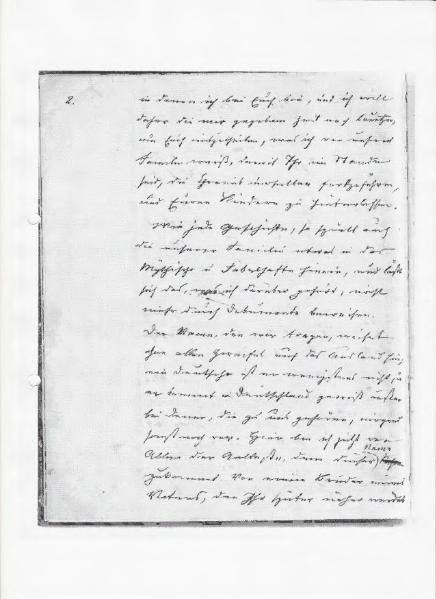 2.
in denen ich bei Euch bin, und ich will
daher die mir gegebene Zeit noch benutzen,
um Euch mitzutheilen, was ich von unserer
Familie weiß, damit Ihr im Stande
seid, die Chronik derselben fortzuführen,
und Euren Kindern zu hinterlassen.
Wie jede Geschichte, so spielt auch
die unserer Familie etwas in das
Mythische u Fabelhafte hinein, und läßt
sich das, was ich darüber gehört, nicht
mehr durch Dokumente beweisen.
Der Name, den wir tragen, weiset
ohne allen Zweifel auf das Ausland hin,
ein Deutscher ist er wenigstens nicht, ja
er kommt in Deutschland gewiß außer
bei denen, die zu uns gehören, nirgend
sonst noch vor. Hier bin ich jetzt von
Allen der Aelteste, dem dieser Name
zukommt. Von einem Bruder meines
Vaters, den Ihr später näher werdet